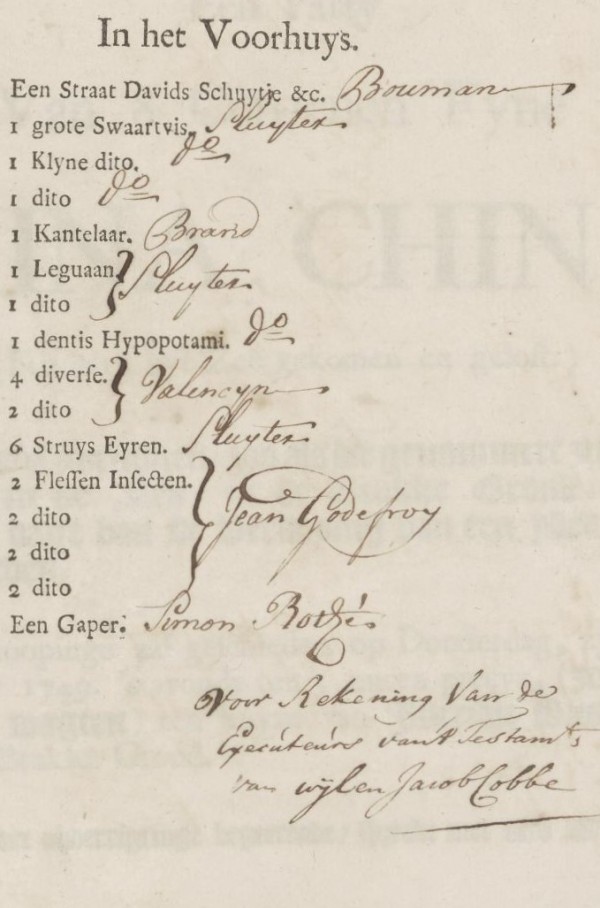 In het Voorhuys.
Een Straat Davids Schuytje &c. Bouman
1 grote Swaartvis. Sluyter
1 Klyne dito. do
1 dito do
1 Kantelaar. Brand
1 Leguaan. } Sluyter
1 dito
1 dentis Hypopotami. do
4 diverse. } Valencyn
2 dito
6 Struys Eyren. Sluyter
2 Flessen Insecten. } Jean Godefroy
2 dito
2 dito
2 dito
Een Gaper. Simon
Voor Rekening Van de
Executeurs van't Testamts
van wylen Jacob Cobbe